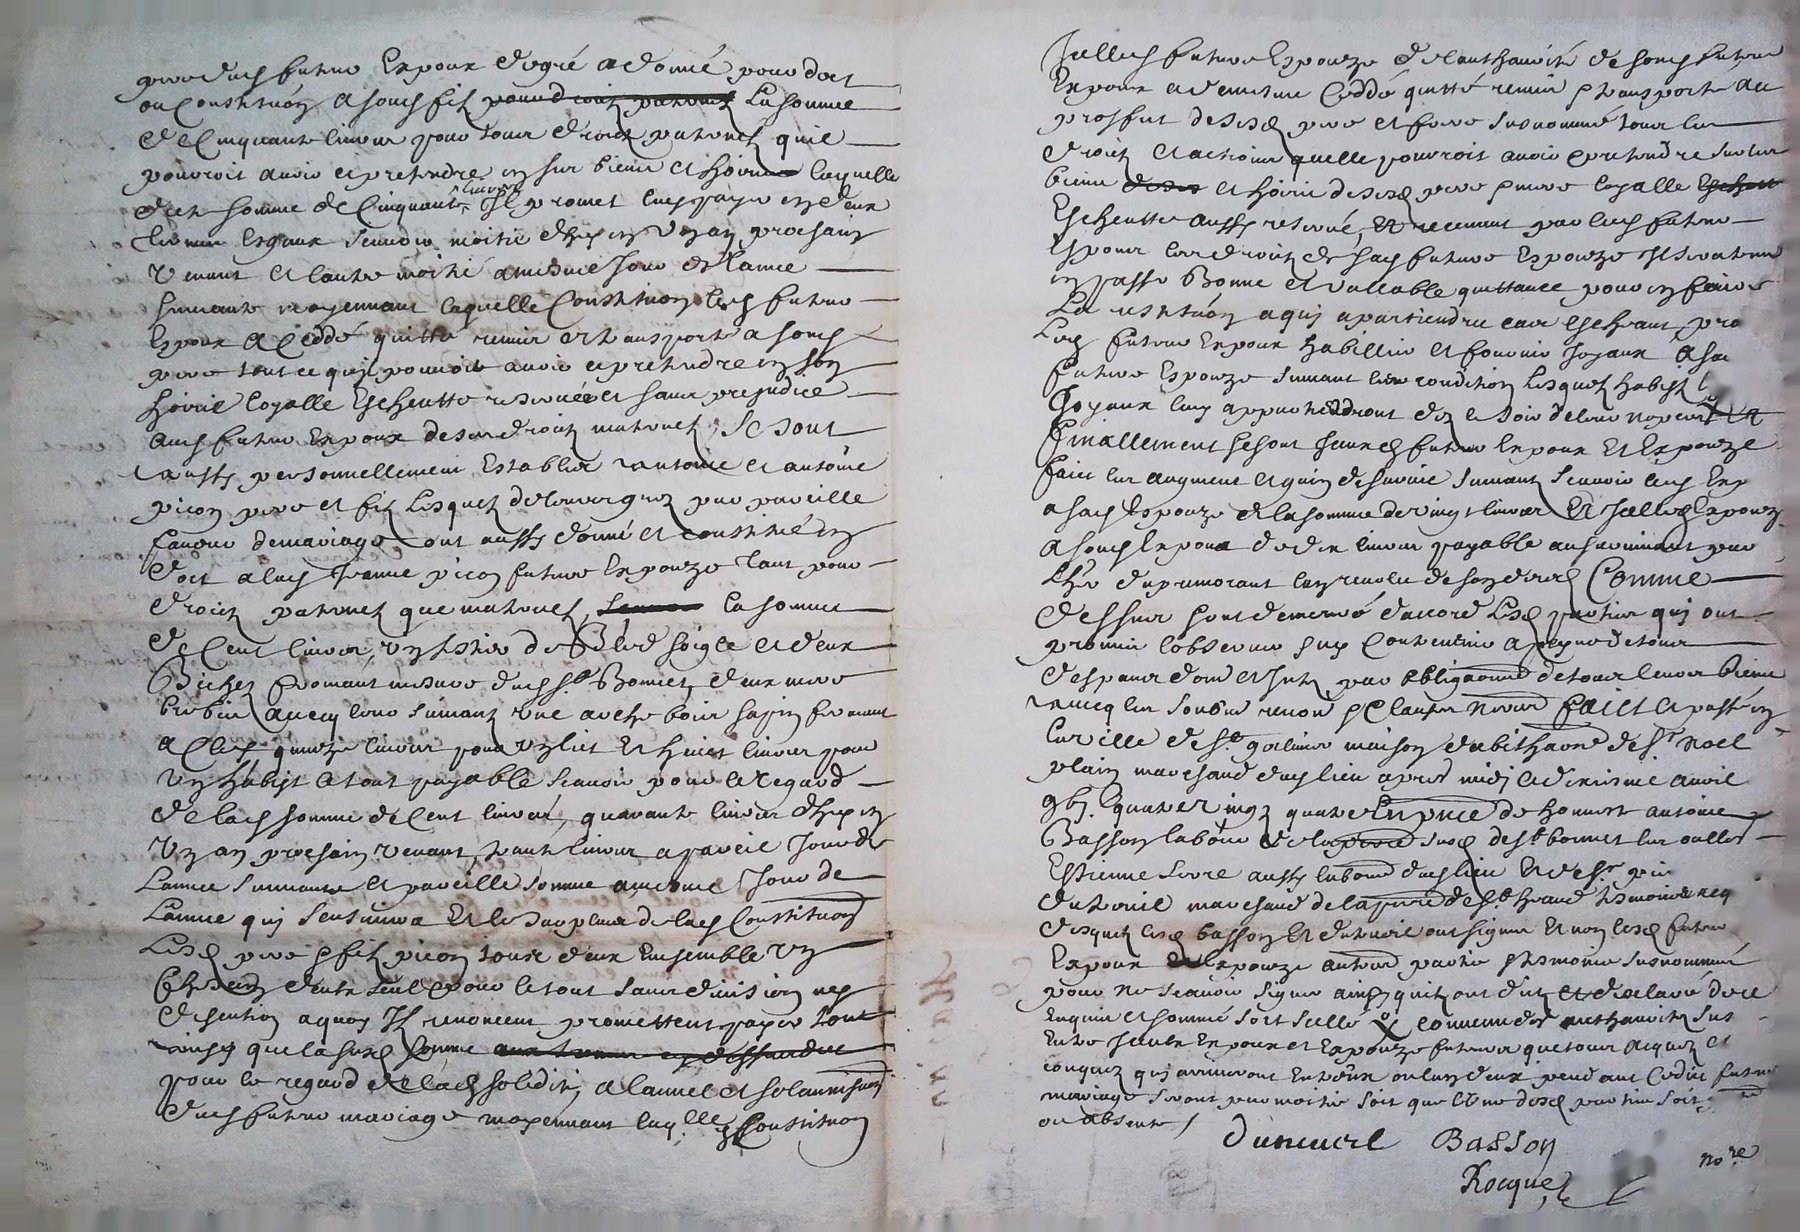 pere dud futur Expoux de gré a donné pour dot
ou Constitution a sond filz pour droictz paternelz La somme
de Cinquante livres pour tous droictz paternelz quil
pourroit avoir et prethendre en sur biens et hoirie laquelle
dicte somme de Cinquante livres Il promet luy payer en deux
termes Esgaux scavoir moitié dhuy en Un an prochain
Venant et lautre moitié a mesme Jour de lannee
suivante moyennant laquelle Constitution led futur
Expoux a Ceddé quitté remis et transporté a sond
pere tout ce quil pourroit avoir et prethendre en son
hoirie loyalle Escheutte reservée et sans prejudice
aud futur Expoux de ses droictz maternelz, Se sont
aussy personnellement Establis anthoine et antoine
picon pere et filz Lesquelz de leur gré par pareille
faveur de mariage ont aussy donné et constitué en
dot a lad Jeanne picon future Expouze tant pour
droictz paternelz que maternelz, la somme
de Cent livres, Un sestier de Bled soigle et deux
Bichetz fromant mesure dud St Bonnet, deux mere
brebis avecq leur suivantz Une arche bois sapin fermant
a Clef quinze livres pour Un lict Et huict livres pour
Un habist Le tout payable scavoir pour le Regard
de lad somme de Cent livres, quarante livres dhuy en
Un an prochain Venant, trante livres a pareil Jour de
Lannee suivante Et pareille somme a mesme Jour de
Lannee qui sensuivra Et le surplus de lad Constitution
Lesd pere et filz picon tous deux Ensemble Un
Chescun deux seul et pour le tout sans division ny
discution a quoy Ilz renoncent promettent payer tout
ainsy que la susd somme
pour le regard de lad solidité, a lannee et solannisation
dud futur mariage moyennant laquelle Constitution
Icelle future Expouze de lauthorité de sond futur
Expoux a de mesme Ceddé quitté remis et transporté au
proffit desd pere et frere susnommé tous les
droictz et actions quelle pourroit avoir et prethendre sur les
biens et hoirie desd pere et mere loyalle
Escheutte aussy reservé, Et recevant par led futur
Espoux les droictz de sad future Espouze Il sera tenu
en passer Bonne et Vallable quittance pour en faire
La restitution a qui apartiendra cas escheant
Led futur Expoux habilliera et fournira Joyaux a sa
future Expouze suivant leur condition Lesquelz habist
Joyaux luy appartiendront dez le Soir de leur nopces
finallement se sont Iceux futur Expoux Et Expouze
faict les augment et gain de survie suivantz scavoir led Exp
a sad Espouze de la somme de vingt livres Et Icelle Expouz
a sond Expoux de dix livres payable au survivant par
Lhoir du premorant luy revolu de son deced Comme
dessus sont demeuré daccord Lesd parties qui ont
promis lobserver sans Contrevenir a peyne de tous
despans dom et Intz par obligations de tous leurs biens
avecq les soubmis renon et Clauses necess faict et passé en
la ville de St galmier maison dabithaon de Sr Noel
plain marchand dud lieu apres midy le dixiesme avril
gbj quatre vingz quatre En pnce de honneste antoine
Basson labour de la proisse de St bonnet les oulles
Estienne sivre aussy labour dud lieu Et de Sr
duteuil marchand de la proisse de St heand tesmoins req
desquelz lesd basson Et duteuil ont signé Et non lesd futur
Expoux Expouze autres parties et tesmoins susnommé
pour ne scavoir signer ainsy quilz ont dictz et declaré dece
Enquis et sommé soit scellé convenu des authoritez sus
Entre Iceux Expoux et Expouze futurs que tous acquez et
conquez qui arriveront Entre eux ou lun deux pendant Ledict futur
mariage seront par moitié soit que lune desd parties soit
ou absente /
Duteuil Basson
Rocque nore